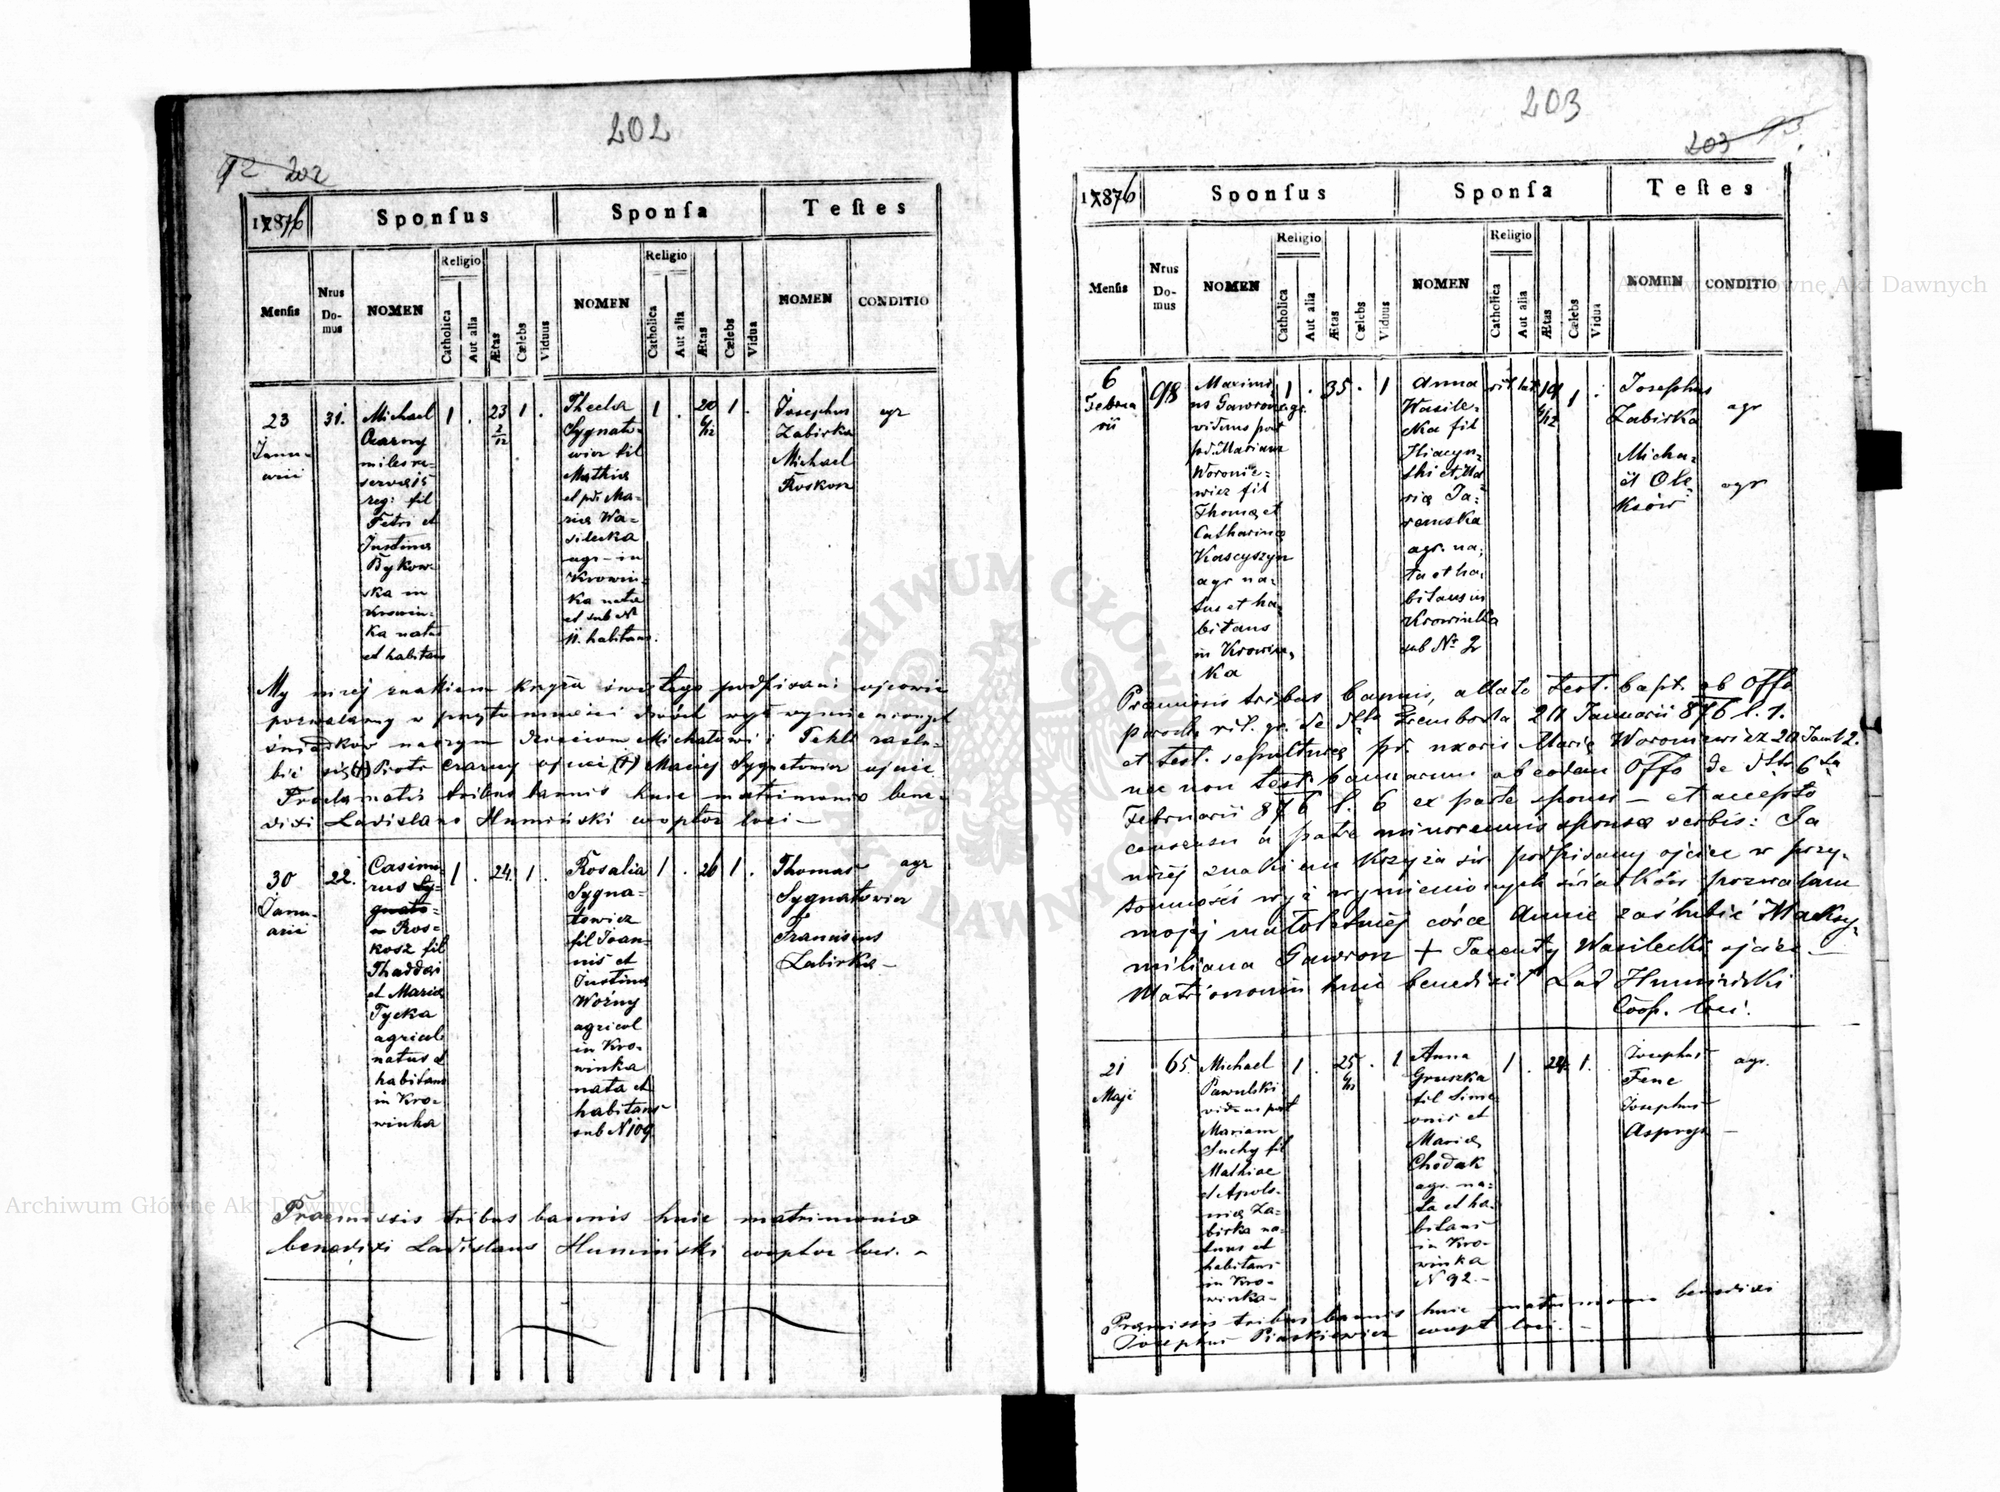 202
92 202
1876
Sponſus
Sponſa
Teſtes
Menſis
Nrus Domus
NOMEN
Religio
Catholica
Aut alia
Ætas
Cælebs
Viduus
NOMEN
Religio
Catholica
Aut alia
Ætas
Cælebs
Vidua
NOMEN
CONDITIO
23
Janu-
arii
31.
Michael
Czarny
miles re-
servæ 15
reg: fil
Petri et
Justinæ
Bykow-
ska in
Krowin-
ka natus
et habitans
1 . 23 2/12 1 .
Thecla
Sygnato-
wicz fil
Mathiæ
et pr. Ma-
riæ Wa-
silecka
agr- in
Krowin-
ka nata
et sub N
11. habitans.
1 . 20 6/12 1 .
Josephus
Zabirka
Michael
Roskosz
agr
My niżej znakiem krzyża świętego podpisani ojcowie
pozwalamy w przytomności dwóch wyż wymienionych
świadków naszym dzieciom Michałowi i Tekli zaślu-
bić się (+) Piotr Czarny ojciec (+) Maciej Sygnatowicz ojciec
Proclamatis tribus bannis huic matrimonio bene-
dixi Ladislaus Humiński cooptor loci -
30
Janu-
arii
22.
Casimi-
rus Sy-
gnato-
Ros-
kosz fil
Thaddæi
et Mariæ
Tycka
agricol
natus et
habitans
in Kro-
winka
1 . 24. 1 .
Rosalia
Sygna-
towicz
fil Joan-
nis et
Justinæ
Woźny
agricol
in Kro-
winka
nata et
habitans
sub N 109
1 . 26 1 .
Thomas
Sygnatowicz
Franciscus
Zabirka -
agr
Praemissis tribus bannis huic matrimonio
benedixi Ladislaus Humiński cooptor loci. -
203
203 93
1876
Sponſus
Sponſa
Teſtes
Menſis
Nrus Domus
NOMEN
Religio
Catholica
Aut alia
Ætas
Cælebs
Viduus
NOMEN
Religio
Catholica
Aut alia
Ætas
Cælebs
Vidua
NOMEN
CONDITIO
6
Februa
rii
98
Maximi
us Gawron agr.
viduus post
pd. Mariam
Woronie-
wicz fil
Thomæ et
Catharinæ
Kascyszyn
agr na-
tus et ha-
bitans
in Krowin-
ka
1 . 35 . 1
Anna
Wasile-
cka fil
Hiacyn-
thi et Ma
riæ Ja-
remska
agr. na-
ta et ha-
bitans in
Krowinka
sub Nr 2
rit. lat. 19 6/12 1 .
Josephus
Zabirka
Micha-
ël Ole-
ksów
agr
agr
Præmissis tribus bannis, allato test. bapt. ab Offo
paroch. rit. gr. de dto Trembowla 20 Januarii 876 l. 1.
et test. sepulturæ pr. uxoris Mariæ Woroniewicz 20 Jan l 2.
nec non test. bannorum ab eodem Offo de dto 6 ta
Februarii 876 l. 6 ex parte sponsi - et accepto
consensu a patre minorennis sponsæ verbis: Ja
niżej znakiem krzyża św. podpisany ojciec w przy-
tomności wyż wymienionych świadków pozwalam
mojej małoletniej córce Annie zaślubić Maksy-
miliana Gawron + Jacenty Wasilecki ojciec. -
Matrimonio huic benedixit Lad Humiński
Coop. loci.
21
Maji
65.
Michael
Pawulski
viduus post
Mariam
Suchy fil
Mathiae
et Apolo-
niæ Za-
birka na-
tus et
habitans
in Kro-
winka-
1 . 25 . 1.
Anna
Gruszka
fil Sime
onis et
Mariæ
Chodak
agr. na-
ta et ha-
bitans
in Kro-
winka
N 92. -
1 . 24. 1.
Josephus
Fenc
Josephus
agr.
Præmissis tribus bannis huic matrimonio benedixi
Josephus Piaskiewicz coopt loci. -
Archiwum Główne Akt Dawnych
Archiwum Główne Akt Dawnych
ARCHIWUM GŁÓWNE AKT DAWNYCH